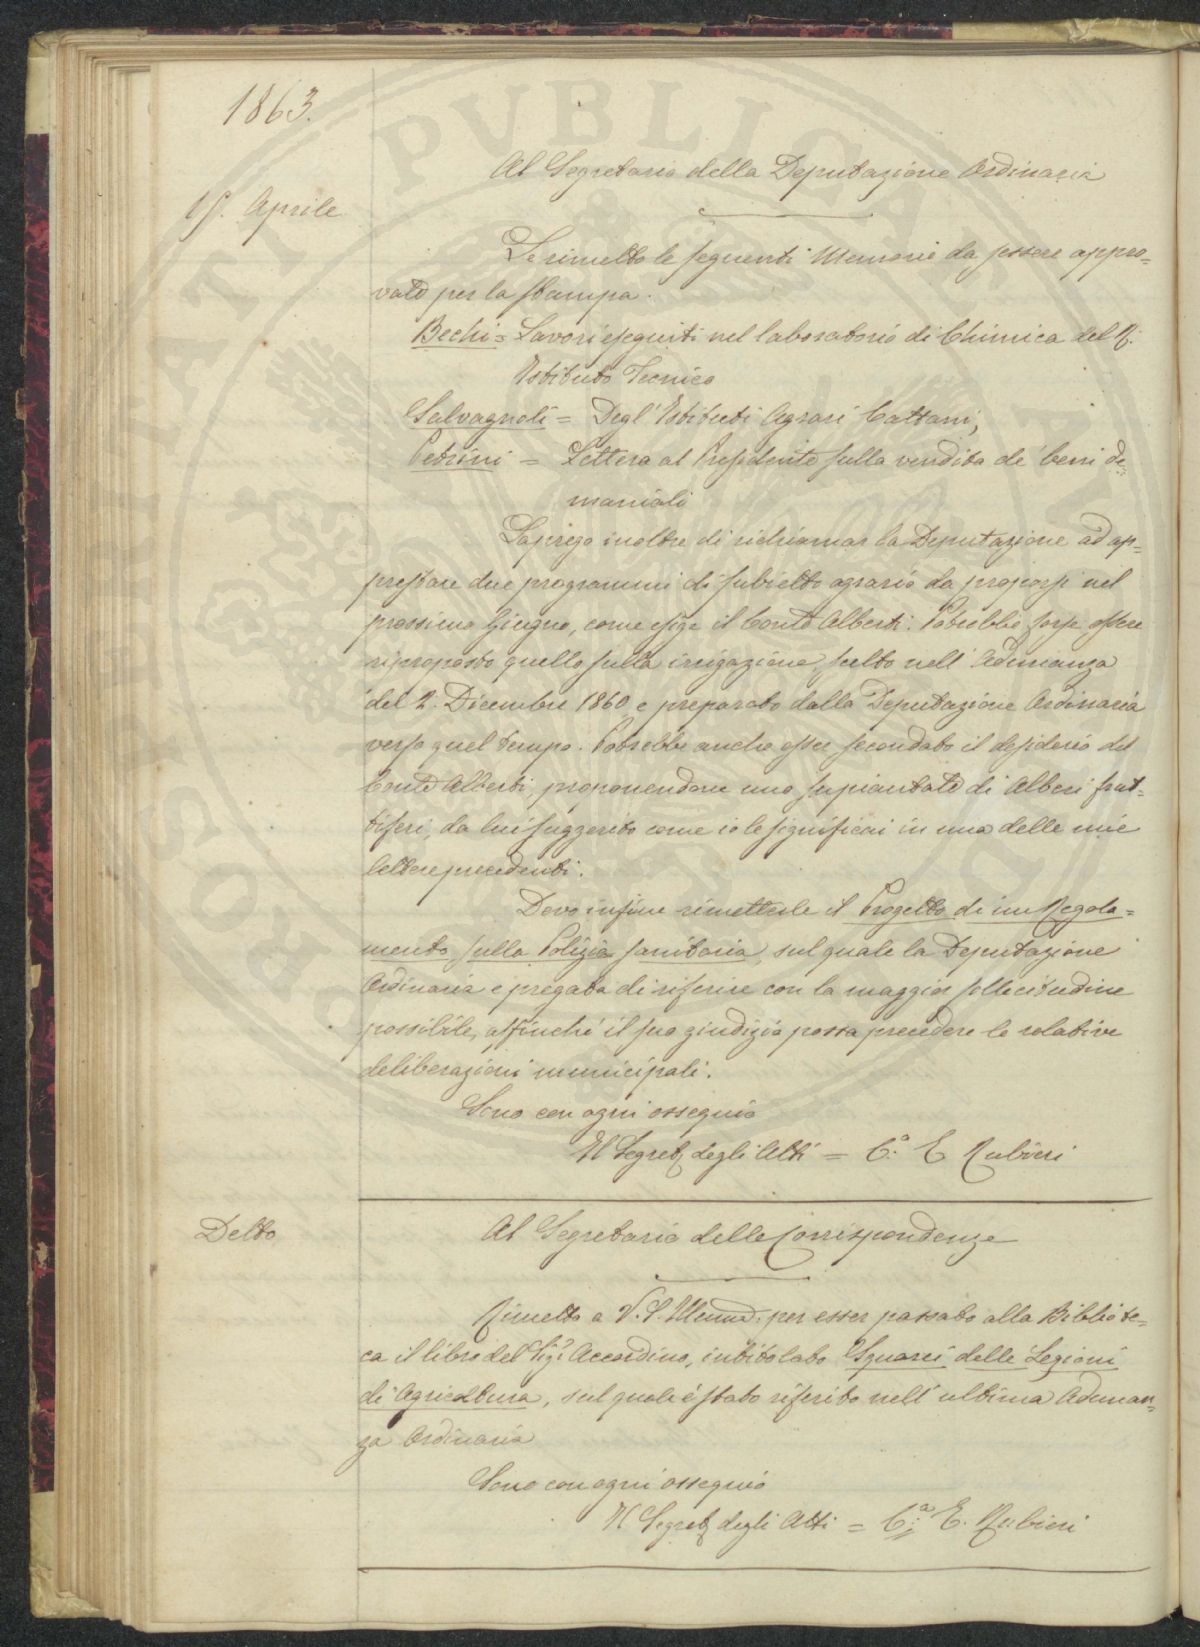 1863.
Al Segretario della Deputazione Ordinaria
15. Aprile
Le rimetto le seguenti Memorie da essere appro=
vate per la stampa.
Bechi = Lavori eseguiti nel laboratorio di Chimica del R.
Istituto Tecnico
Salvagnoli = Degl'Istituti Agrari Cattani,
Petrini = Lettera al Presidente sulla vendita de' beni de=
maniali
La prego inoltre di richiamar la Deputazione ad ap=
prestare due programmi di subietto agrario da proporsi nel
prossimo Giugno, come esige il Conte Alberti. Potrebbe forse essere
riproposto quello sulla irrigazione, scelto nell'Adunanza
del 2. Dicembre 1860 e preparato dalla Deputazione Ordinaria
verso quel tempo. Potrebbe anche esser secondato il desiderio del
Conte Alberti, proponendone uno su piantate di Alberi frut=
tiferi, da lui suggerito come io le significai in una delle mie
lettere precedenti.
Devo infine rimetterle il Progetto di un Regola=
mento sulla Polizia sanitaria, sul quale la Deputazione
Ordinaria è pregata di riferire con la maggior sollecitudine
possibile, affinché il suo giudizio possa precedere le relative
deliberazioni municipali.
Sono con ogni ossequio
Il Segret. degli Atti = C.e E. Rubieri
Detto
Al Segretario delle Corrispondenze
Rimetto a V. S. Illma. per esser passato alla Bibliote=
ca il libro del Sigr. Accordino, intitolato Squarci delle Lezioni
di Agricoltura, sul quale è stato riferito nell'ultima Adunan=
za Ordinaria
Sono con ogni ossequio
Il Segret. degli Atti = C.e E. Rubieri